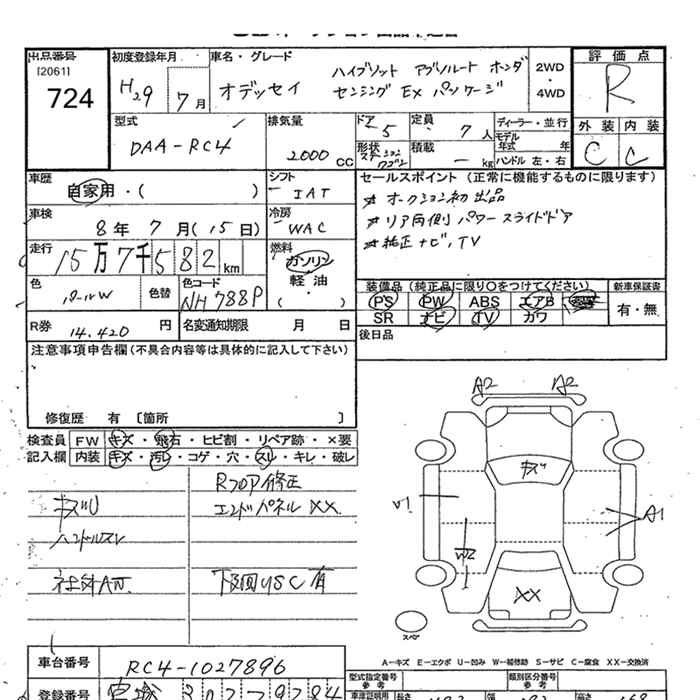 出品番号
[2061]
724
初度登録年月
H29 7月
車名・グレード
オデッセイ
ハイブリット アブソルート ホンダ
センシング EX パッケージ
2WD
・
4WD
評価点
R
外装 内装
C C
型式
DAA-RC4
排気量
2000 CC
ドア 5
形状
ステーションワゴン
定員 7人
積載 - kg
ディーラー・並行
モデル年式 年
ハンドル 左・右
車歴
自家用・( )
シフト
IAT
車検
8年 7月(15日)
冷房
WAC
走行
15万7千582km
燃料
ガソリン
軽油
・( )
色
パールW
色替
色コード
NH788P
R券 14,420 円
名変通知期限 月 日
セールスポイント(正常に機能するものに限ります)
★オークション初出品
★リア両側パワースライドドア
★純正ナビ、TV
装備品(純正品に限り○をつけてください)
新車保証書
PS PW ABS エアB
SR ナビ TV カワ
有・無
後日品
注意事項申告欄(不具合内容等は具体的に記入して下さい)
修復歴 有 〔箇所 〕
検査員 FW キズ・飛石・ヒビ割・リペア跡・×要
記入欄 内装 キズ・汚レ・コゲ・穴・スレ・キレ・破レ
Rフロア修正
キズU
エンドパネルXX
ハンドルスレ
社外AW
下回りSC有
A2 A2
キズ
U1
A1
W2
XX
スペア
A-キズ E-エクボ U-凹み W-補修跡 S-サビ C-腐食 XX-交換済
車台番号
RC4-1027896
型式指定番号
参考
類別区分番号
参考
登録番号